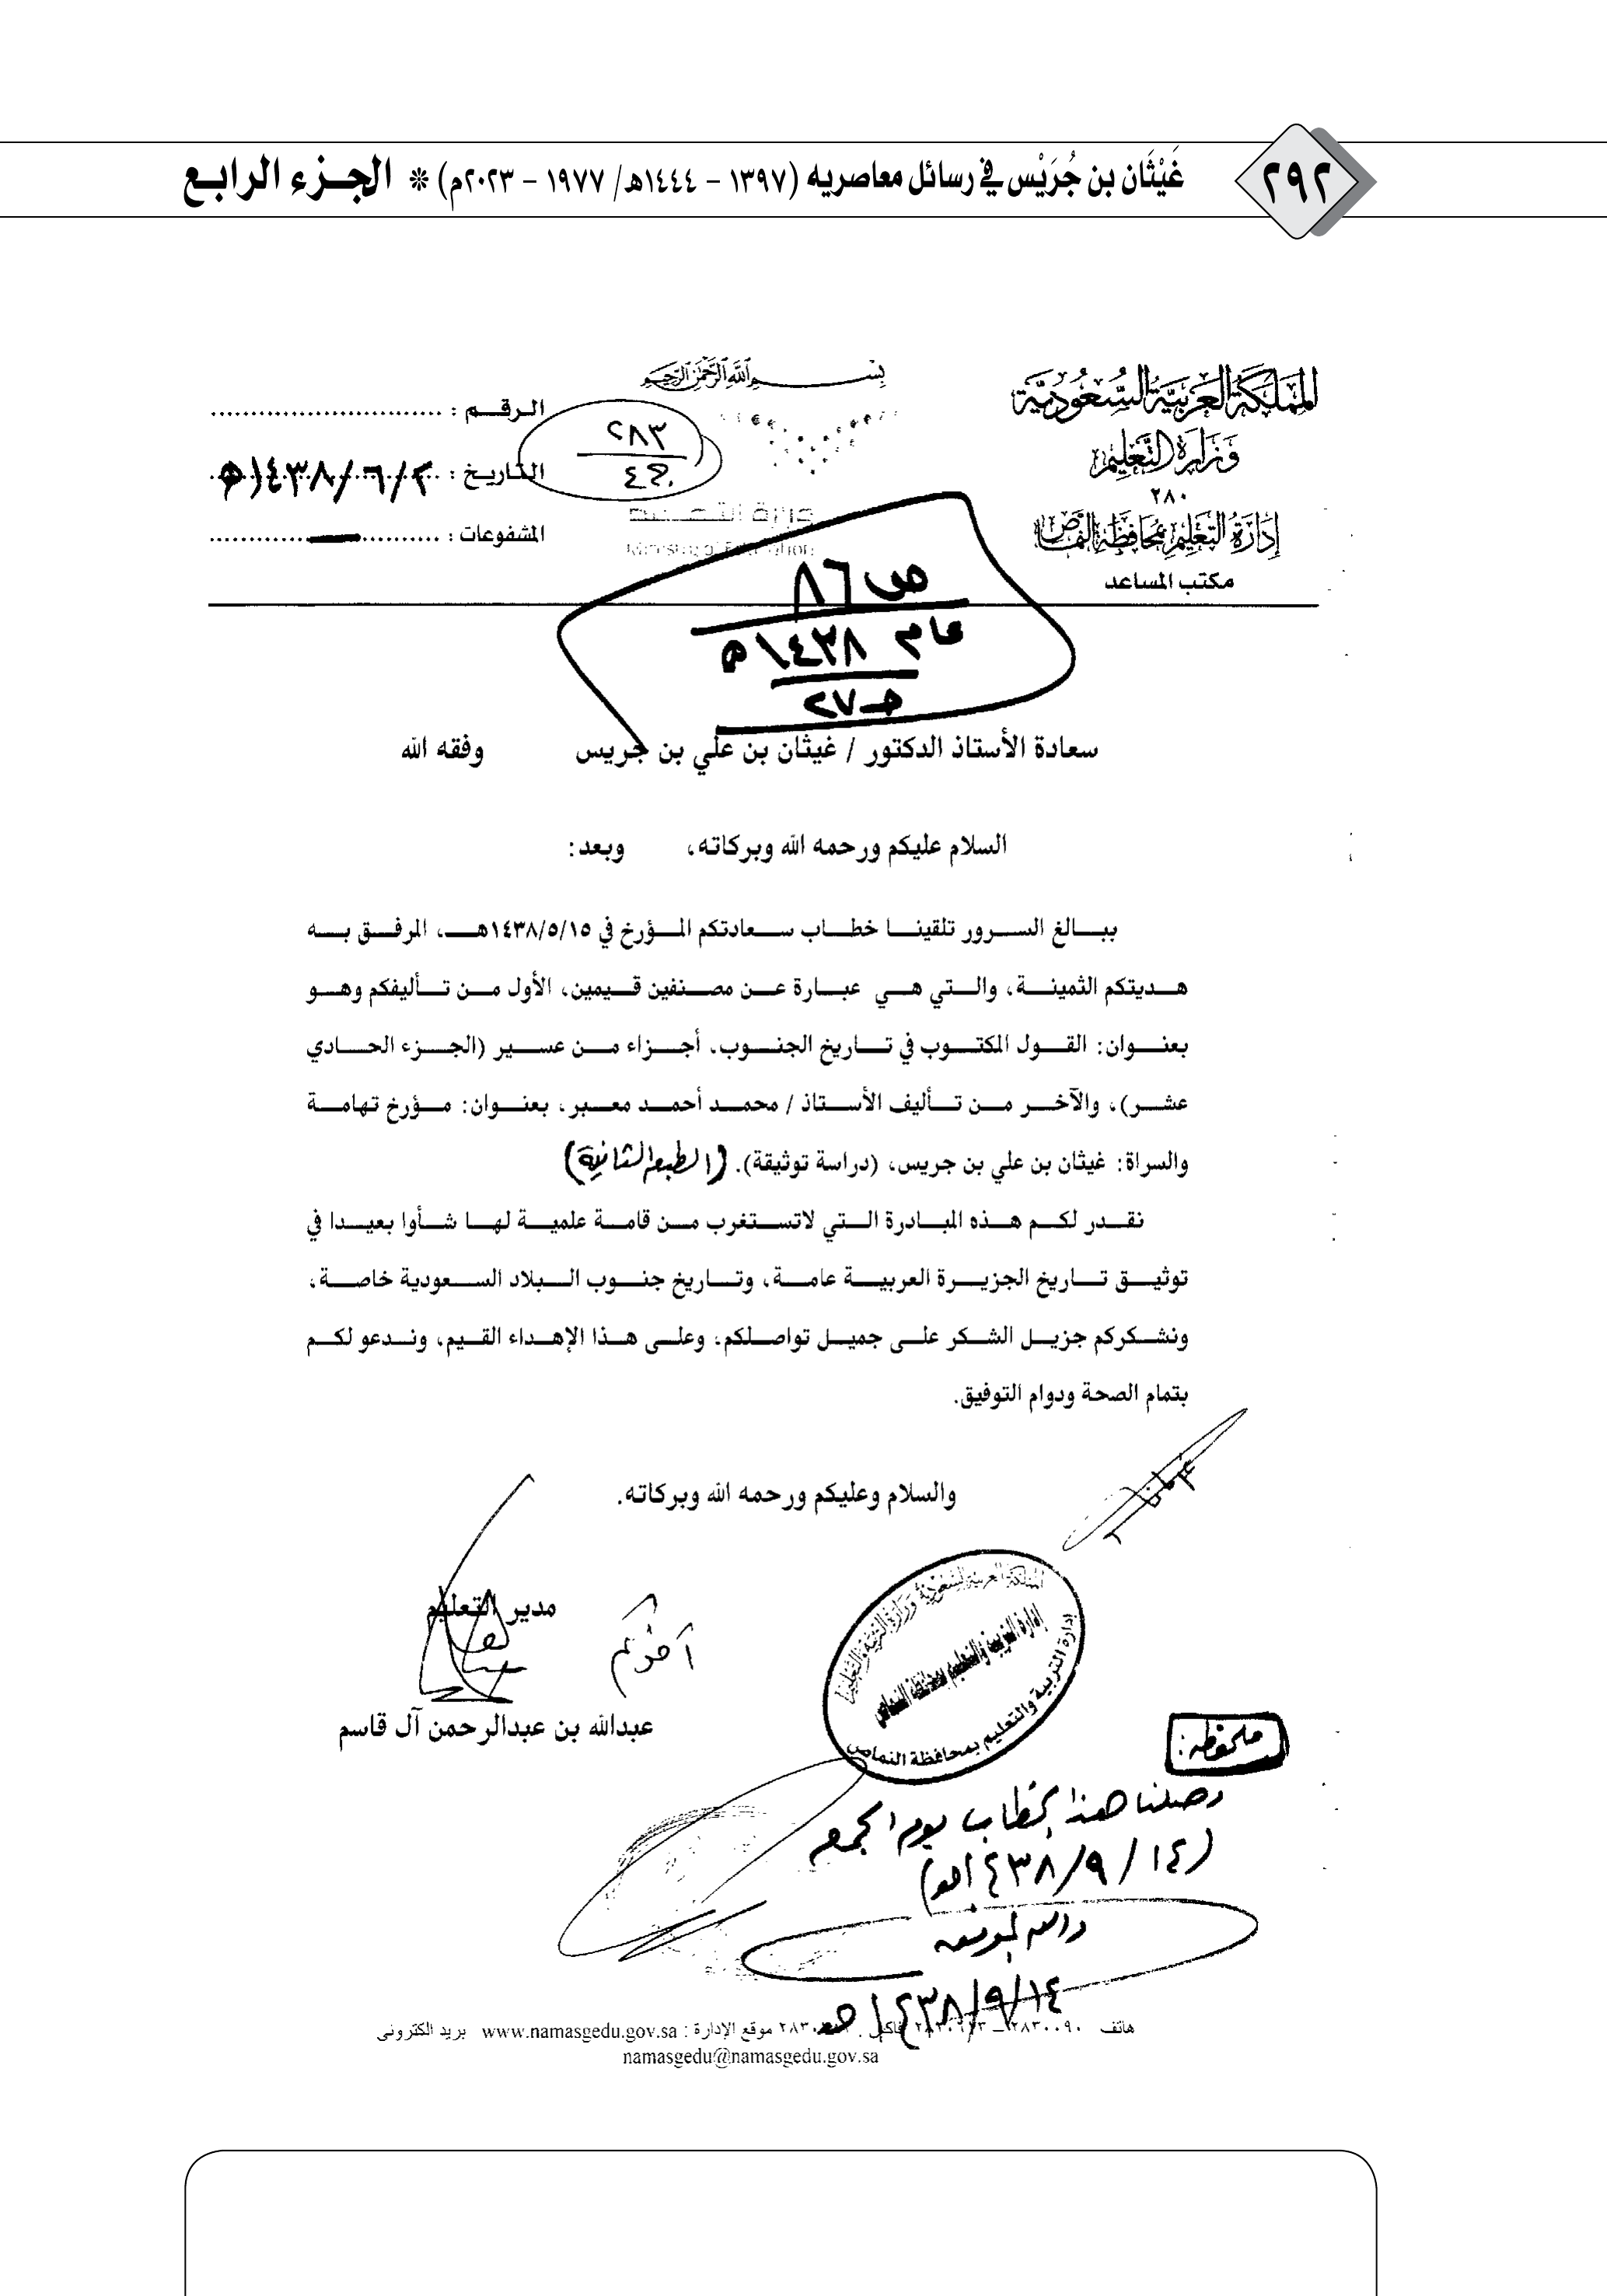 ٢٩٢
غَيْثَان بن جُرَيْس في رسائل معاصريه (١٣٩٧ - ١٤٤٤هـ/ ١٩٧٧ - ٢٠٢٣م) * الجزء الرابع
بسم الله الرحمن الرحيم
المملكة العربية السعودية
وزارة التعليم
٢٨٠
إدارة التعليم بمحافظة النماص
مكتب المساعد
الرقم :
التاريخ : ٢/٦/١٤٣٨هـ
المشفوعات :
٢٨٣
وزارة التعليم
Ministry of Education
ص ٨٦
عام ١٤٣٨هـ
جـ٢٧
سعادة الأستاذ الدكتور / غيثان بن علي بن جريس وفقه الله
السلام عليكم ورحمه الله وبركاته، وبعد:
ببالغ السرور تلقينا خطاب سعادتكم المؤرخ في ١٤٣٨/٥/١٥هـ، المرفق به
هديتكم الثمينة، والتي هي عبارة عن مصنفين قيمين، الأول من تأليفكم وهو
بعنوان: القول المكتوب في تاريخ الجنوب، أجزاء من عسير (الجزء الحادي
عشر)، والآخر من تأليف الأستاذ / محمد أحمد معبر، بعنوان: مؤرخ تهامة
والسراة: غيثان بن علي بن جريس، (دراسة توثيقة). (الطبعة الثانية)
نقدر لكم هذه المبادرة التي لاتستغرب من قامة علمية لها شأوا بعيدا في
توثيق تاريخ الجزيرة العربية عامة، وتاريخ جنوب البلاد السعودية خاصة،
ونشكركم جزيل الشكر على جميل تواصلكم، وعلى هذا الإهداء القيم، وندعو لكم
بتمام الصحة ودوام التوفيق.
والسلام وعليكم ورحمه الله وبركاته.
مدير التعليم
أخوكم
عبدالله بن عبدالرحمن آل قاسم
المملكة العربية السعودية وزارة التربية والتعليم
إدارة التربية والتعليم بمحافظة النماص
إدارة التربية والتعليم بمحافظة النماص
ملحوظة:
وصلنا هذا الخطاب يوم الجمعة
(١٤/٩/١٤٣٨هـ)
والله الموفق
١٤/٩/١٤٣٨هـ
هاتف ٢٨٣٠٠٩٠ فاكس موقع الإدارة : www.namasgedu.gov.sa بريد الكترونى
namasgedu@namasgedu.gov.sa